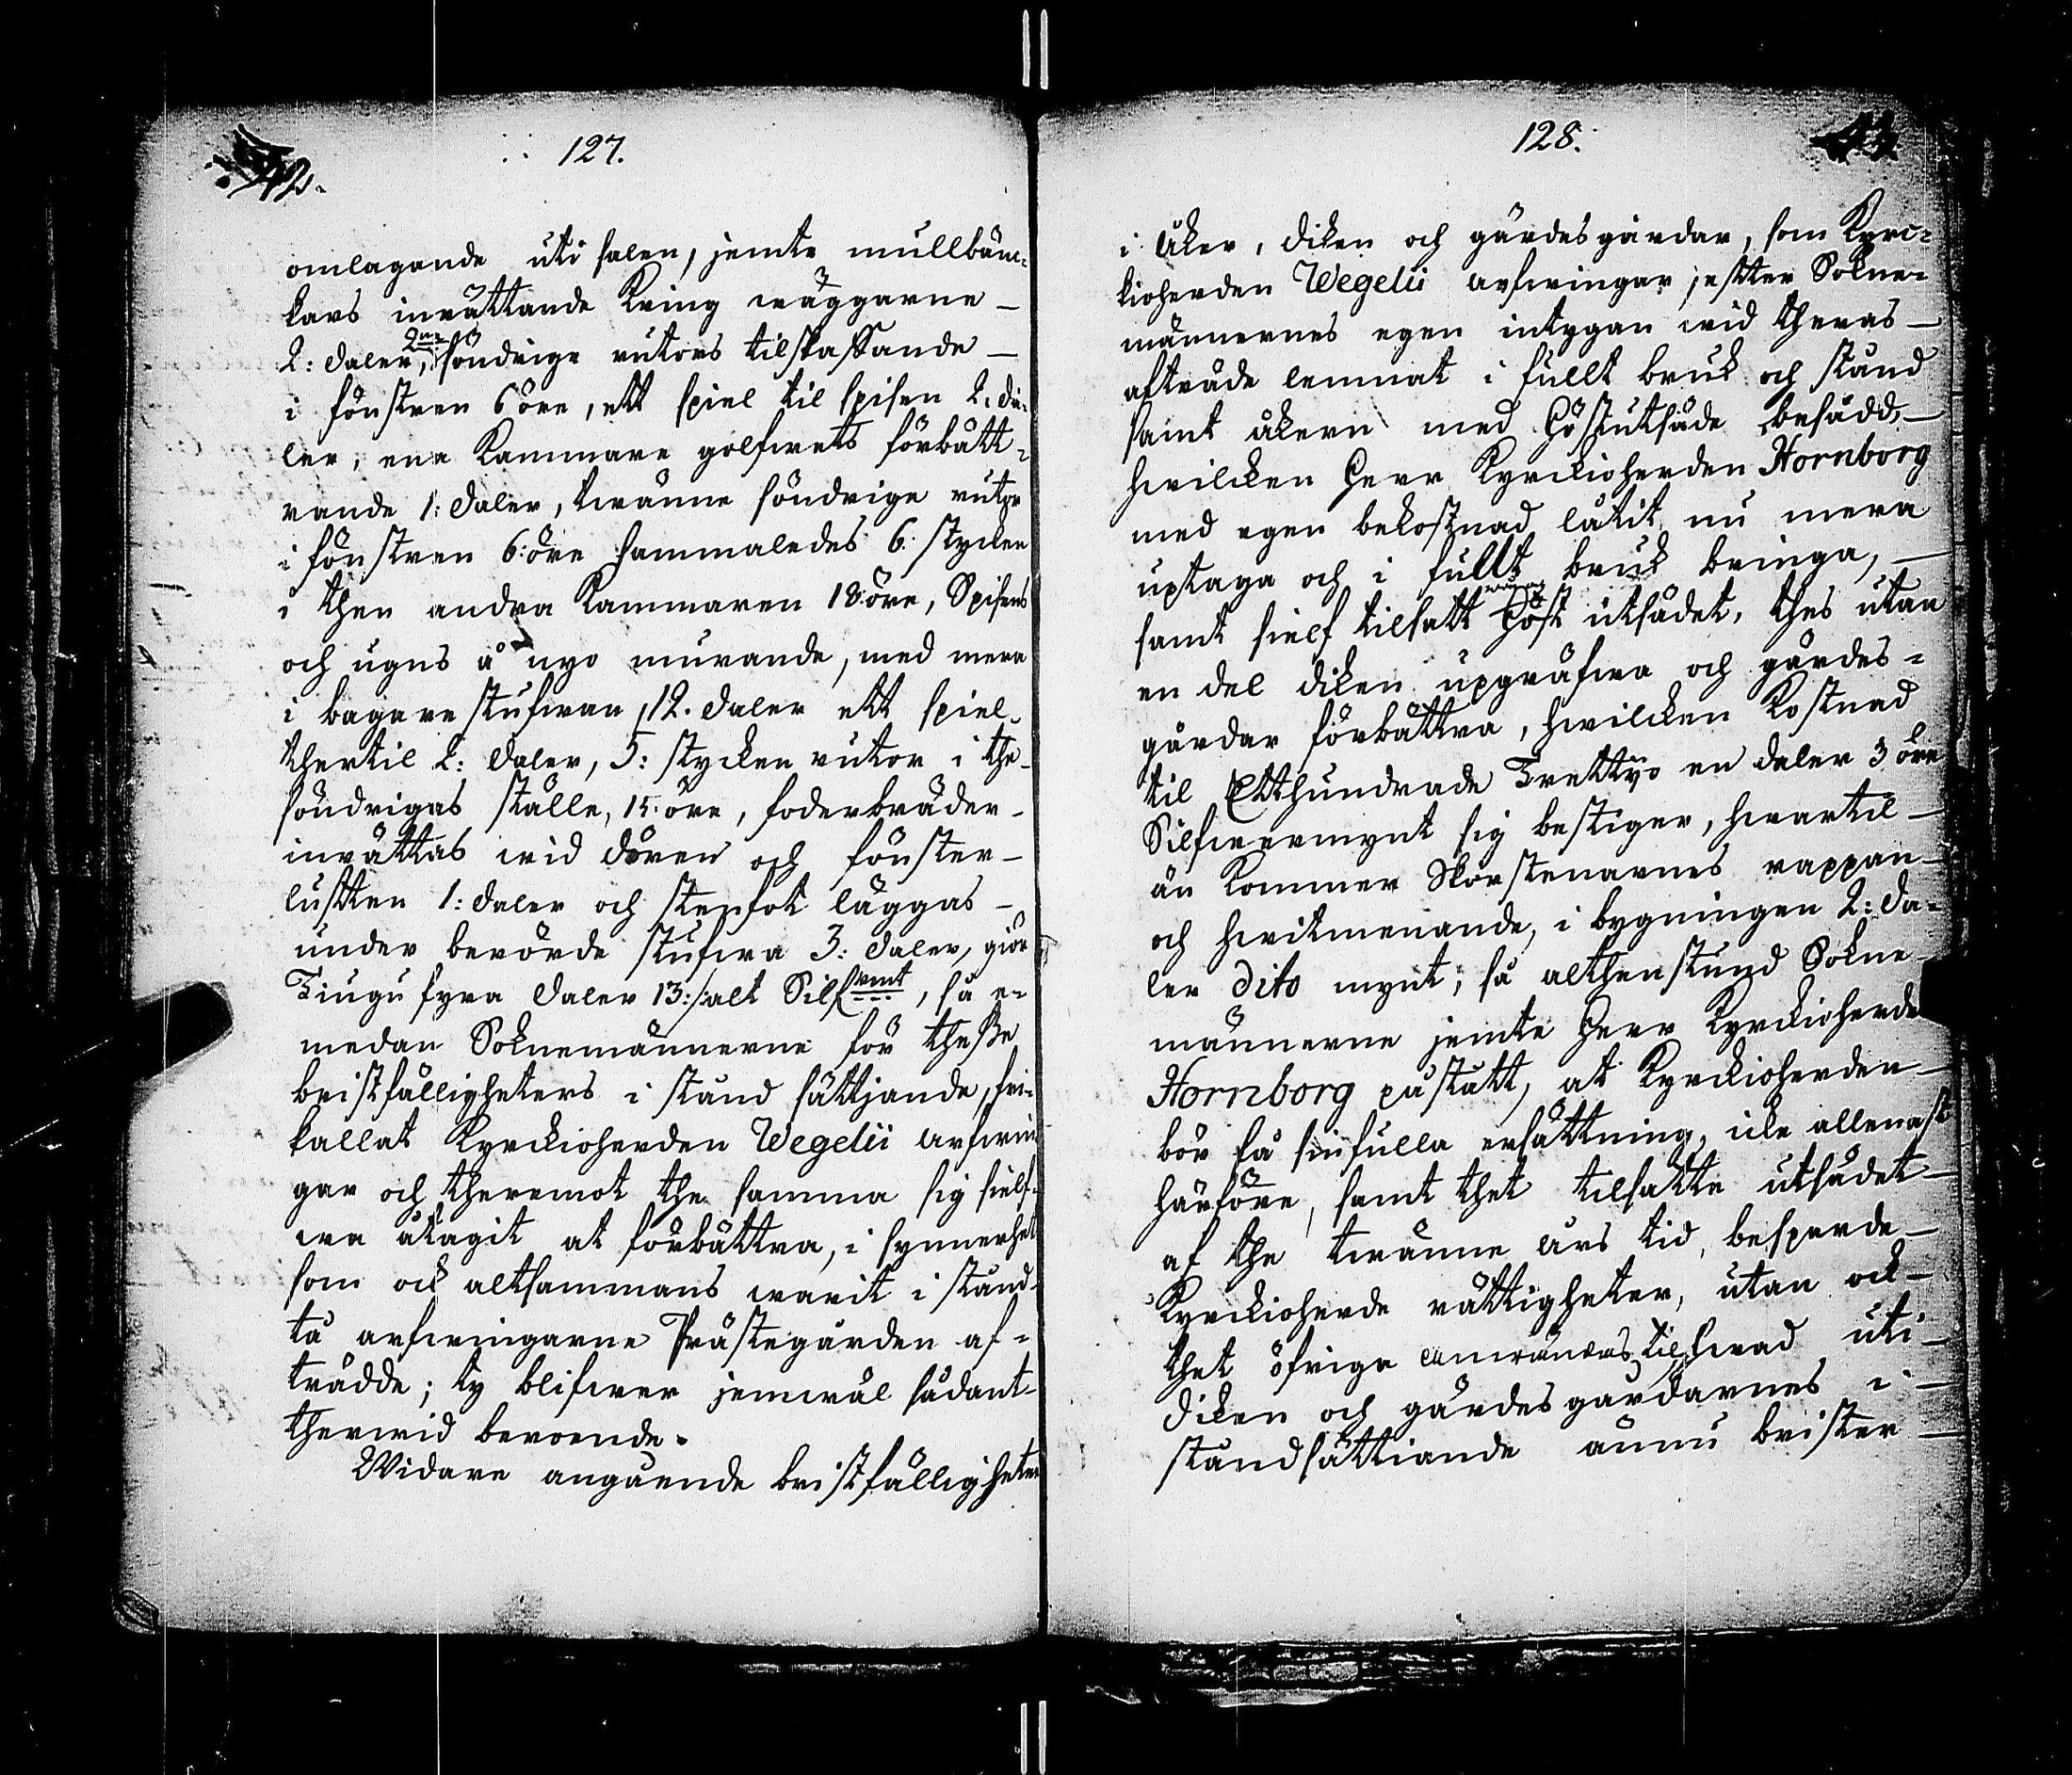 127.
omlagande uti salen, jemte mullbänc-
kars inrättande kring wäggarne —
2: daler, 2ne söndrige rutors tilpassande —
i fönstren 6 öre, ett spiel til spisen 2: da-
ler, ena Kammare golfwets förbätt-
rande 1: daler, twänne söndrige rutor
i fönstren 6: öre sammaledes 6: stycken
i then andra Kammaren 18: öre, Spisens
och ugns å nyo murande, med mera
i bagarestufwan 12. daler ett spiel-
thertil 2: daler, 5: stycken rutor i the-
söndrigas ställe, 15: öre, foderbräder-
inrättas wid dören och fönster-
lufften 1: daler och stenfot läggas —
under berörde stufwa 3: daler, giör
Tiugu fyra daler 13: alt Silfwmt, så e-
medan Soknemännerne för theße
bristfälligheters i stånd sättjande, fri-
kallat Kyrckioherden Wegelii arfwin
gar och theremot the samma sig sielf-
wa åtagit at förbättra, i synnerhet
som ock altsammans warit i stånd-
tå arfwingarne Prästegården af-
trädde; ty blifwer jemwäl sådant-
therwid beroende.
Widare angående bristfälligheter
128.
i åker, diken och gärdesgårdar, som Kyrc-
kioherden Wegelii arfwingar, effter Sokne-
männernes egen intygan wid theras —
afträde lemnat i fullt bruk och stånd
samt åkern med höstutsäde besådd, —
hwilcken Herr Kyrckioherden Hornborg
med egen bekostnad låtit nu mera
uptaga och i fullt bruk bringa, —
samt sielf tilsatt höst utsädet, thes utan
en del diken upgräfwa och gärdes-
gårdar förbättra, hwilcken kostnad
til Etthundrade Trettijo en daler 3 öre
Silfwermynt sig bestiger, hwartil —
än kommer Skorstenarnes rappan-
och hwitmenande, i bygningen 2: da-
ler dito mynt; så althenstund Sokne-
männerne jemte Herr Kyrckioherde
Hornborg påstått, at Kyrckioherden —
bör få sin fulla ersättning, icke allenast
härföre, samt thet tilsatte utsädet —
af the twänne års tid, besparde —
Kyrckioherde rättigheter, utan ock —
thet öfriga användas til hwad uti —
diken och gärdesgårdarnes i —
ståndsättiande ännu brister —